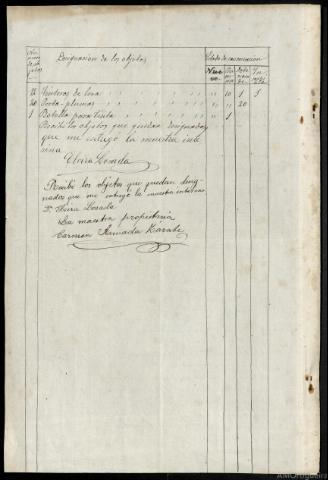 Designación de los objetos
Estado de conservación
Nuevo
12 Tinteros de loza " " 10 1 1
20 Porta-plumas " " " 20
1 Botella para tinta " " 1
Recibí los objetos que quedan designados
que me entregó la maestra inte
rina
Elvira Losada
Recibí los objetos que quedan desig-
nados que me entregó la maestra interina
Dª Elvira Losada
La maestra propietaria
Carmen Armada Zárate
AMOrtigueira